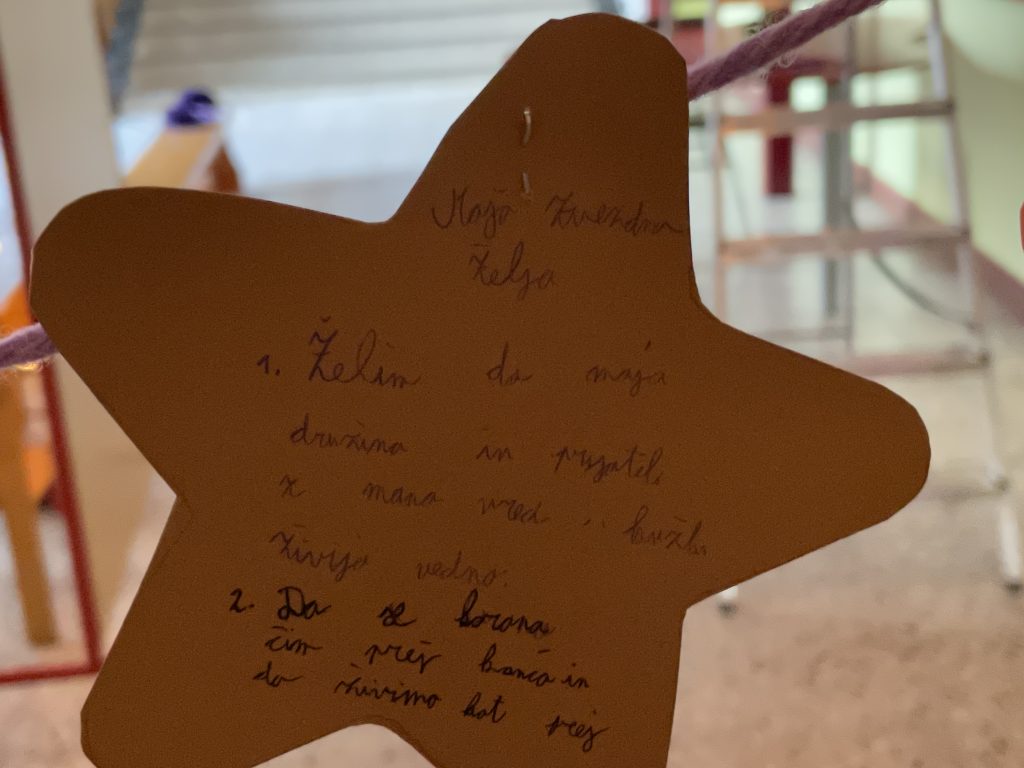 Moja zvezdna
želja
1. Želim da moja
družina in prijatli
z mano vred
živijo vedno.
2. Da se korona
čim prej konča in
da živimo kot prej